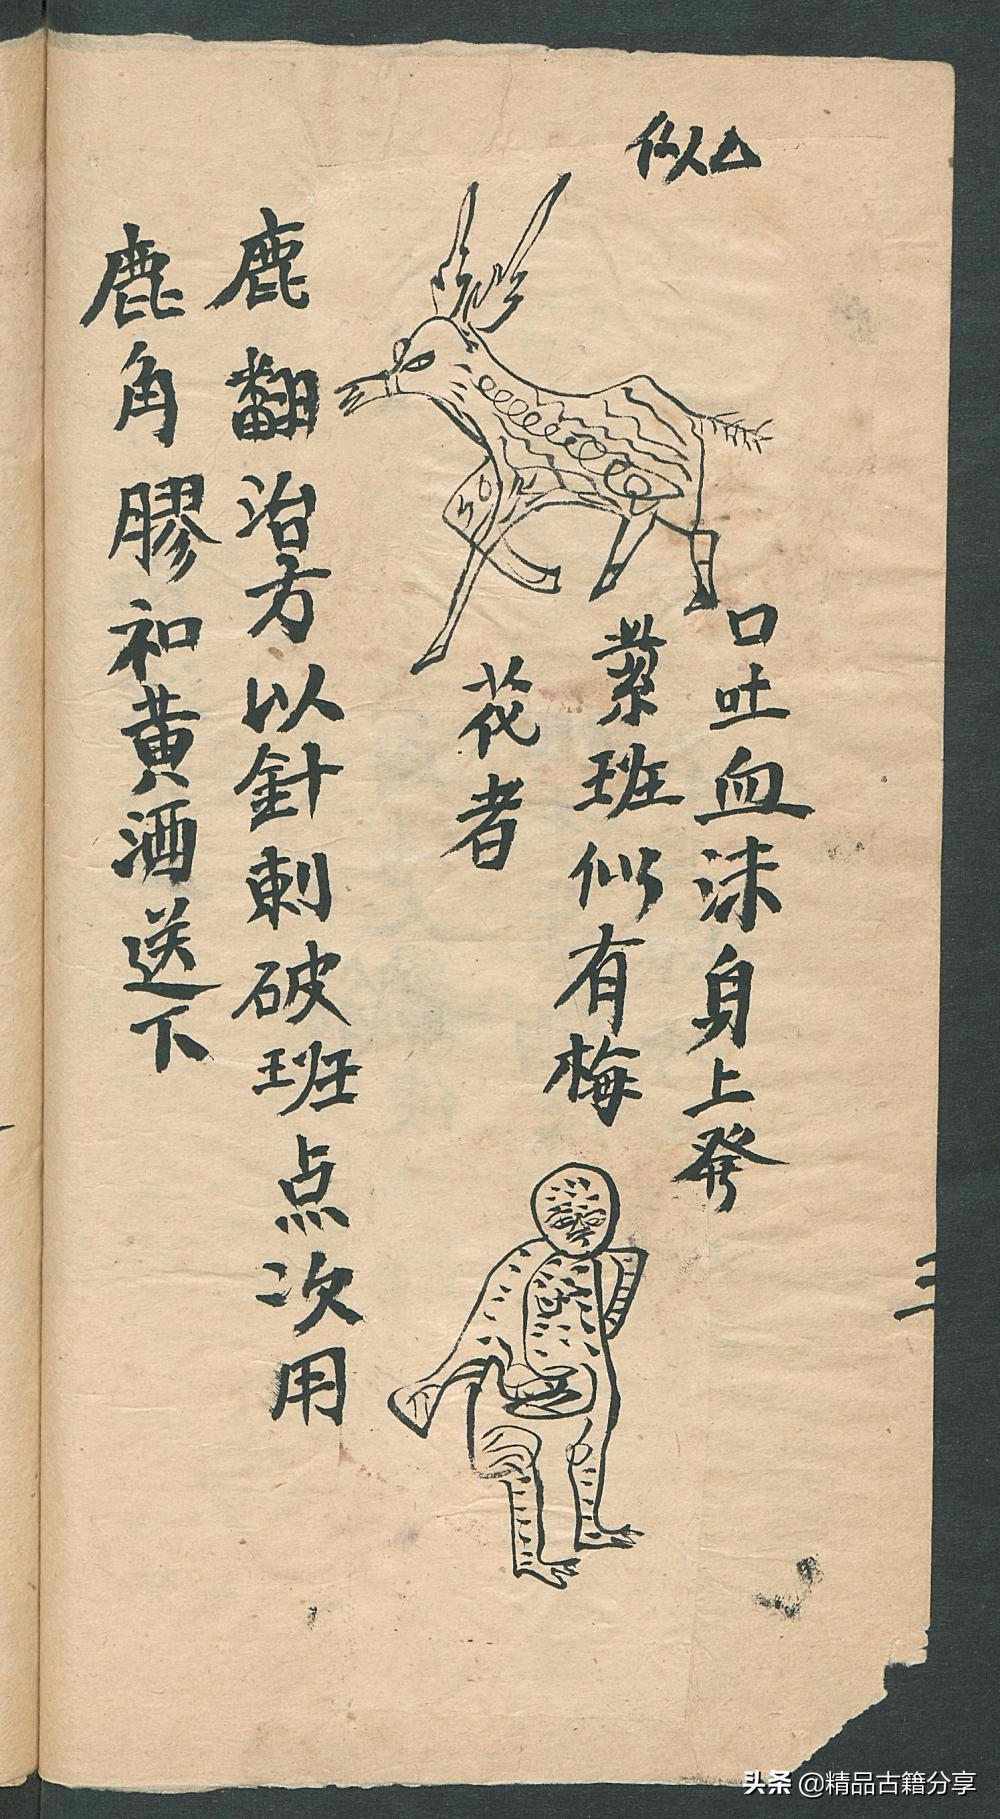 似△
口吐血沫身上發
紫班似有梅
花者
鹿翻治方以針刺破班点次用
鹿角膠和黄酒送下
三
头条 @精品古籍分享